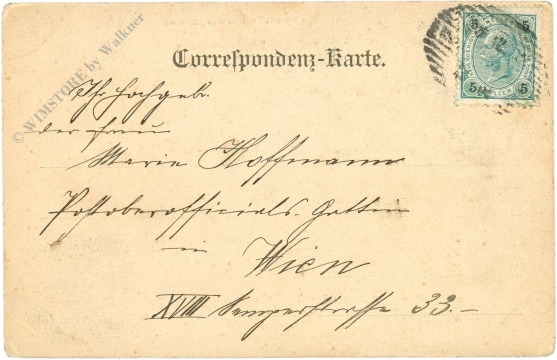 © WIMSTORE by Walkner
Correspondenz-Karte.
5 5
5 5
Ihr Hochgeb.
der Frau
Marie Hoffmann
Postoberofficials-Gattin
in
Wien
XVIII Semperstrasse 33.-